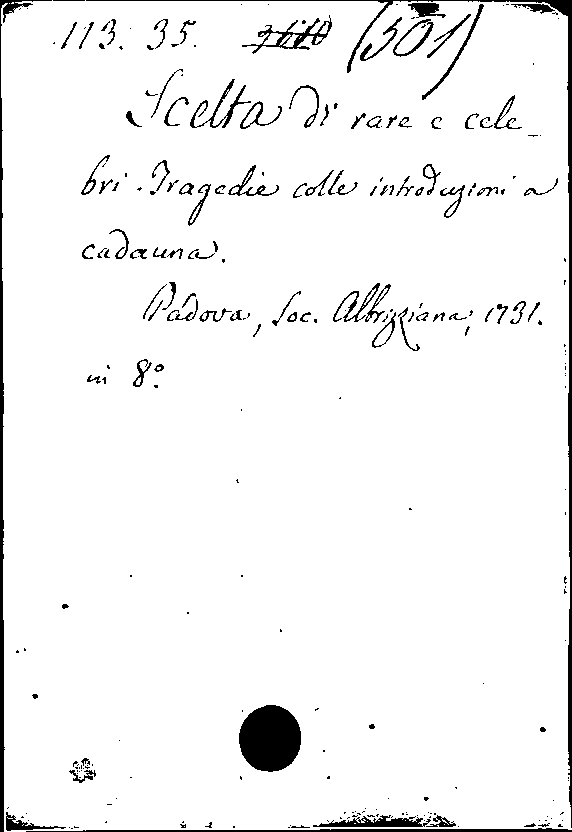 113. 35. (501)
Scelta di rare e cele_
bri Tragedie colle introduzioni a
cadauna.
Padova, Soc. Albrizziana, 1731.
in 8º.